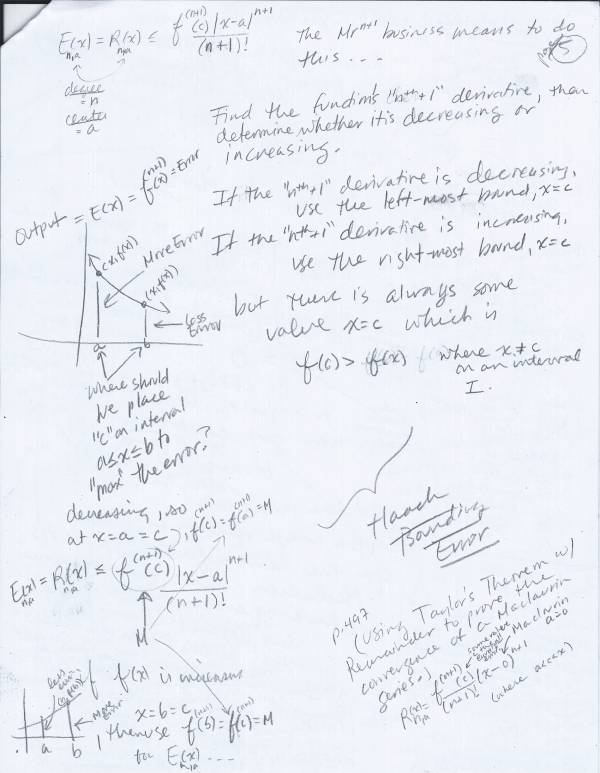 E_{n,a}(x) = R_{n,a}(x) ≤ f^{(n+1)}(c)|x-a|^{n+1} / (n+1)!
degree = n
center = a
The Mr^{n+1} business means to do
this ....
5
Find the function's "n^{th}+1" derivative, then
determine whether it is decreasing or
increasing.
If the "n^{th}+1" derivative is decreasing,
use the left-most bound, x=c
If the "n^{th}+1" derivative is increasing,
use the right-most bound, x=c
but there is always some
value x=c which is
f(c) > f(x) where x≠c
on an interval
I.
Output = E(x) = f^{(n+1)}(x) = Error
(x,f(x))
More Error
(x,f(x))
less
Error
a b
where should
we place
"c" on interval
a≤x≤b to
"max" the error?
decreasing, so
at x=a=c, f^{(n+1)}(c) = f^{(n+1)}(a) = M
E_{n,a}(x) = R_{n,a}(x) ≤ f^{(n+1)}(c) |x-a|^{n+1} / (n+1)!
M
Error
p.497
(Using Taylor's Theorem w/
Remainder to prove the
convergence of a Maclaurin
series.)
Maclaurin
a=0
R_{n,a}(x) = f^{(n+1)}(c) / (n+1)! (x-0)^{n+1}
(where a<c<x)
less
error
More
Error
a b
if f(x) is increasing
x=b=c
then use f^{(n+1)}(b) = f^{(n+1)}(c) = M
for E_{n,a}(x) ....